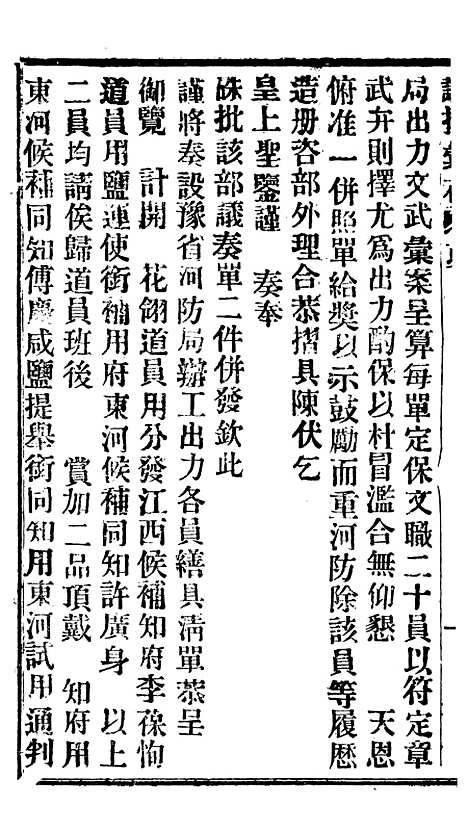 局出力文武彙案呈算每單定保文職二十員以符定章
武弁則擇尤爲出力酌保以杜冒濫合無仰懇　天恩
俯准一併照單給奬以示鼓勵而重河防除該員等履歷
造册咨部外理合恭摺具陳伏乞
皇上聖鑒謹　奏奉
硃批該部議奏單二件併發欽此
謹將奏設豫省河防局辦工出力各員繕具淸單恭呈
御覽　計開　花翎道員用分發江西候補知府李葆恂
道員用鹽運使銜補用府東河候補同知許廣身　以上
二員均請俟歸道員班後　賞加二品頂戴　知府用
東河候補同知傅慶咸鹽提舉銜同知用東河試用通判